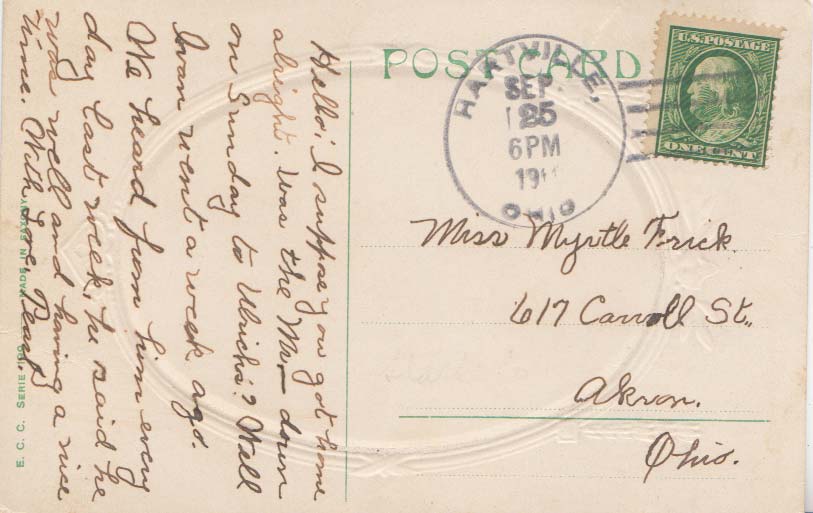 POST CARD
HARTVILLE,
SEP.
25
6 PM
OHIO
U.S. POSTAGE
ONE CENT
Miss Myrtle Frick.
617 Carroll St.,
Akron.
Ohio.
Hello! I suppose you got home
alright. Was the Mr. down
on Sunday to Ulrichs? Well
Ivan went a week ago.
We heard from him every
day last week, he said he
was well and having a nice
time. With Love, Pearl.
E. C. C. SERIE MADE IN